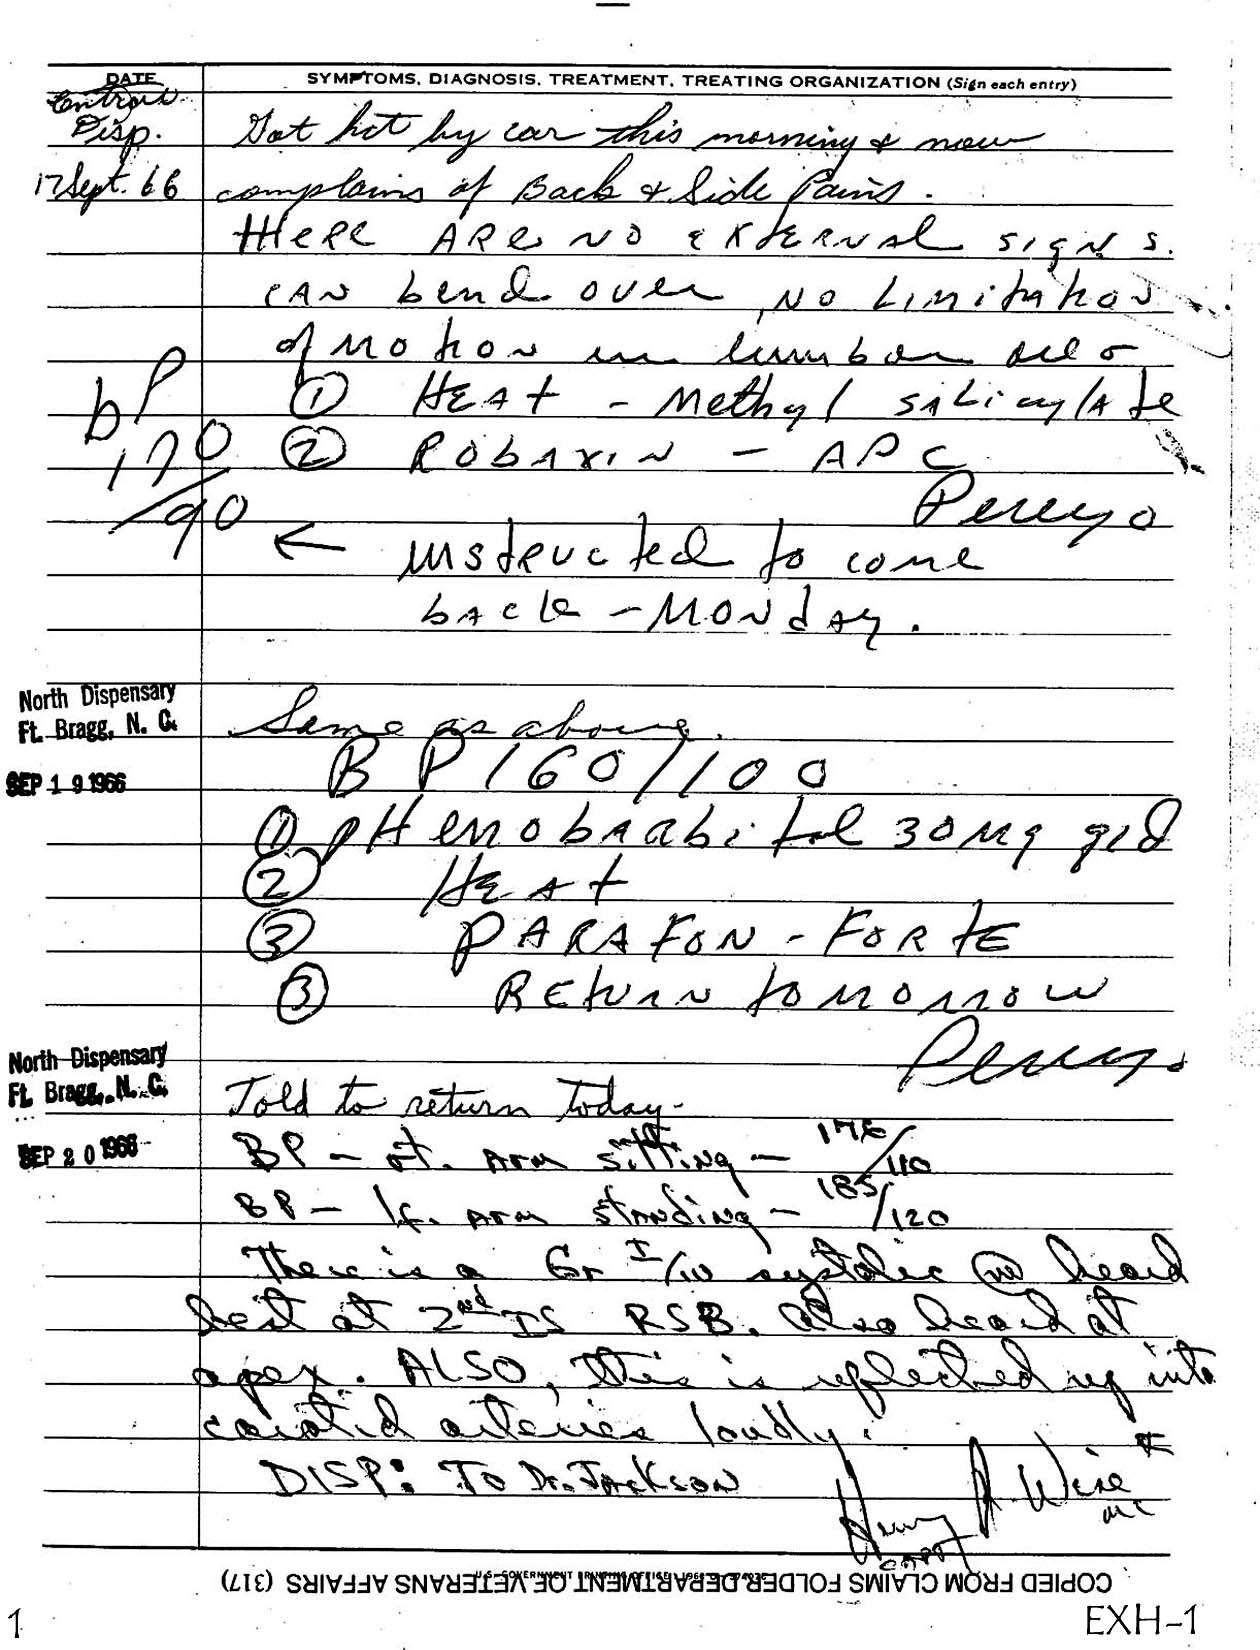 DATE
SYMPTOMS, DIAGNOSIS, TREATMENT, TREATING ORGANIZATION (Sign each entry)
Disp.
Got hit by car this morning & now
17 Sept. 66
complains of Back & Side Pains.
There are no external signs.
can bend over, no limitation
of motion in lumbar area
① Heat - Methyl salicylate
② Robaxin - APC
bP
170
/90
Pereyo
← instructed to come
back - Monday.
North Dispensary
Ft. Bragg, N. C.
SEP 19 1966
Same as above.
BP 160/100
① Phenobarbital 30 mg qid
② Heat
③ PARAFON-FORTE
③ Return tomorrow
Pereyo
North Dispensary
Ft. Bragg, N. C.
SEP 20 1966
Told to return today-
BP - rt. arm sitting - 176/110
BP - lf. arm standing - 185/120
There is a Gr systolic ⓜ heard
best at 2nd IS RSB. Also heard at
apex. ALSO, this is reflected up into
carotid arteries loudly.
DISP: To Dr. Jackson
Henry A. Wise
MC
CAPT
U.S. GOVERNMENT PRINTING OFFICE
COPIED FROM CLAIMS FOLDER DEPARTMENT OF VETERANS AFFAIRS (317)
1
EXH-1